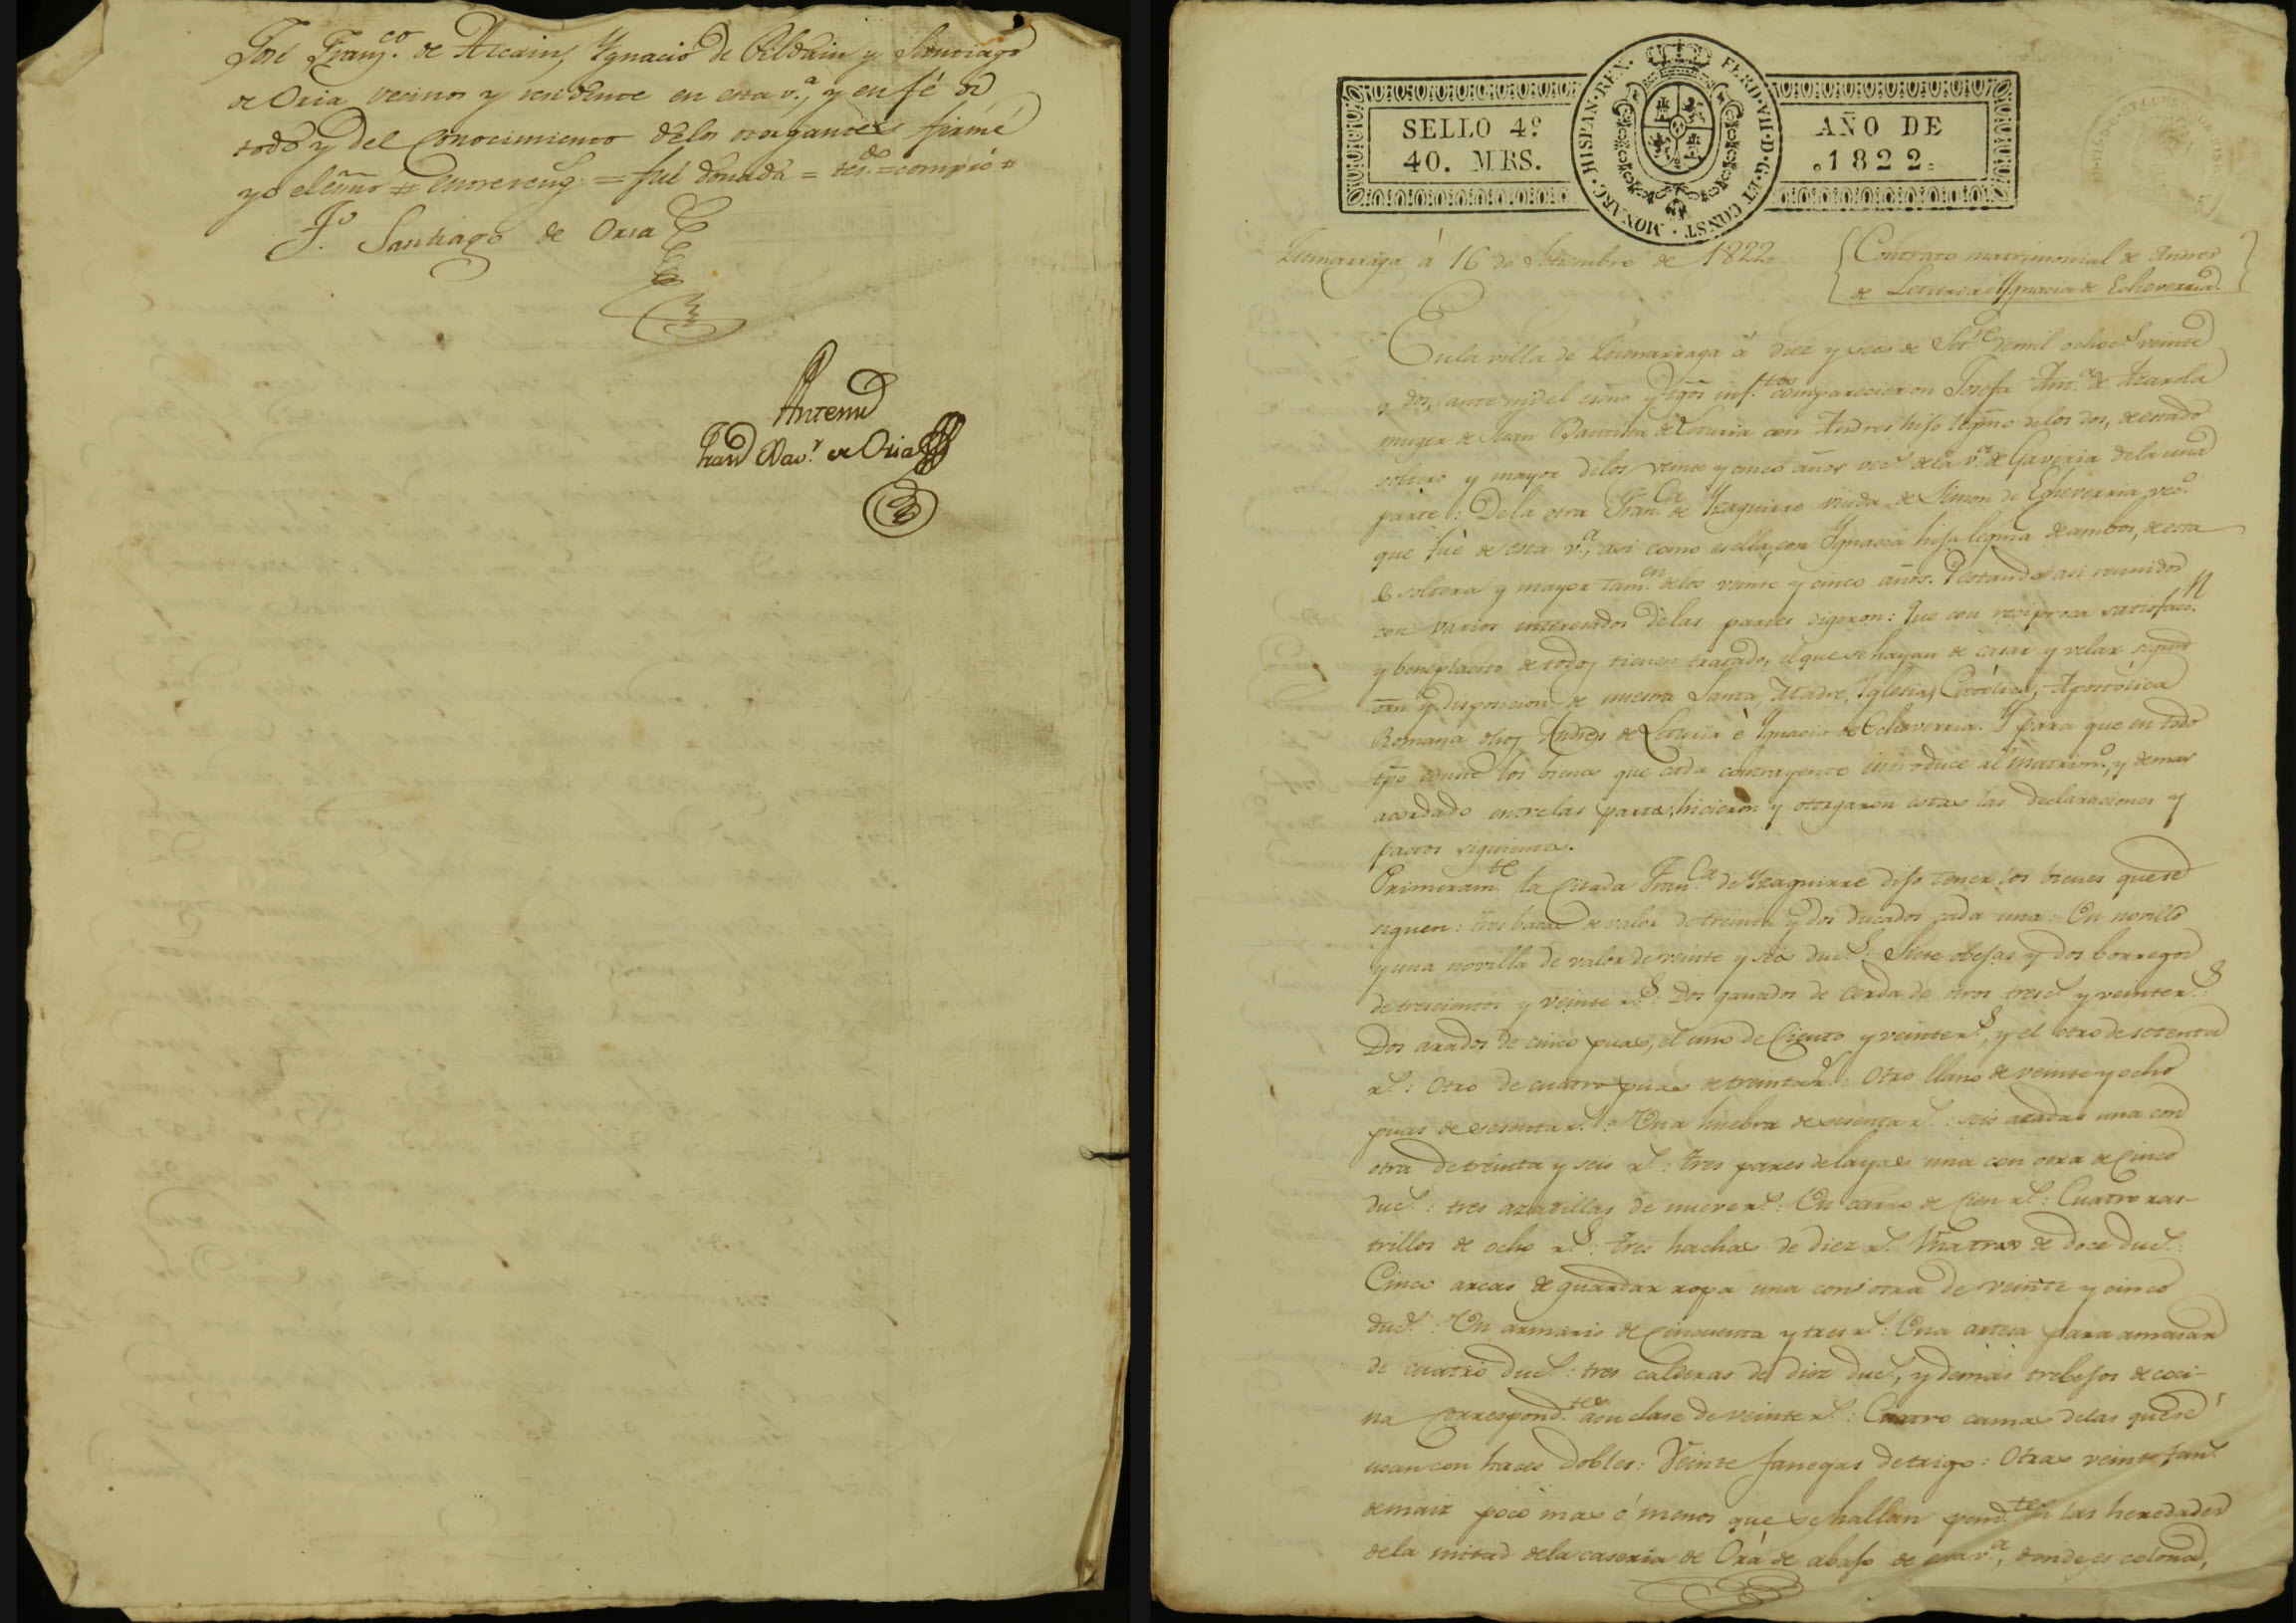 José Fran.co de Alcain, Ygnacio de Vildain y Santiago
de Oria vecinos y residente en esta v.a, y en fé de
todo y del conocimiento delos otorgantes firmé
yo el esno = = fué donada = = compió =
F.o Santiago de Oria
Antemi
Fran Xav.r de Oria
SELLO 4º
40. MRS.
AÑO DE
1822.
FERD·VII·D·G·ET CONST·MONARC·HISPAN·REX·
Zumarraga à 16 de Setiembre de 1822
Contrato matrimonial de Andres
de Leturia é Ygnacia de Echeverria.
En la villa de Zumarraga à diez y seis de Set.e de mil ochoc.s veinte
y dos, ante mi el esno y tgos inf.tos comparecieron Josefa Ant.a de Azarola
muger de Juan Bautista de Leturia con Andres hijo legmo delos dos, de estado
soltero y mayor delos veinte y cinco años vec.s dela v.a de Gaviria dela una
parte: Dela otra Fran.ca de Yzaguirre viuda de Simon de Echeverria vec.o
que fué de esta v.a, asi como es ella, con Ygnacia hija legma de ambos, de esta
do soltera y mayor tam.en delos veinte y cinco años. Y estando asi reunidos
con varios interesados delas partes digeron: Que con reciproca satisfac.n
y beneplacito de todos tienen tratado, el que se hayan de casar y velar segun
orn y disposicion de nuestra Santa, Madre, Yglesia, Católica, Apostólica
Romana dhos Andres de Leturia è Ygnacia de Echeverria. Y para que en todo
tpo conste los bienes que cada contrayente introduce al Matrim.o, y demas
acordado entre las partes, hicieron y otorgaron estas las declaraciones y
pactos siguientes.
Primeram.te la citada Fran.ca de Yzaguirre dijo tener los bienes que se
siguen: tres bacas de valor de treinta y dos ducados cada una: Un novillo
y una novilla de valor de veinte y seis duc.s: Siete obejas y dos borregos
de trescientos y veinte r.s: Dos ganados de cerda de otros tresc.s y veinte r.s:
Dos arados de cinco puas, el uno de ciento y veinte r.s, y el otro de setenta
r.s: Otro de cuatro puas de treinta r.s: Otro llano de veinte y ocho
puas de sesenta r.s: Una huebra de sesenta r.s: seis azadas una con
otra de treinta y seis r.s: tres pares de layas una con otra de cinco
duc.s: tres azadillas de nueve r.s: Un carro de cien r.s: Cuatro ras-
trillos de ocho r.s: tres hachas de diez r.s de doce duc.s:
Cinco arcas de guardar ropa una con otra de veinte y cinco
duc.s: Un armario de cincuenta y tres r.s: Una artesa para amasar
de cuatro duc.s: tres calderas de diez duc.s, y demás trebejos de coci-
na correspond.tes a su clase de veinte r.s: Cuatro camas delas que se
usan con haces dobles: Veinte fanegas de trigo: Otras veinte fan.s
de maiz poco mas ó menos que se hallan pend.tes en las heredades
dela mitad dela caseria de Orá de abajo de esta v.a, donde es colona,